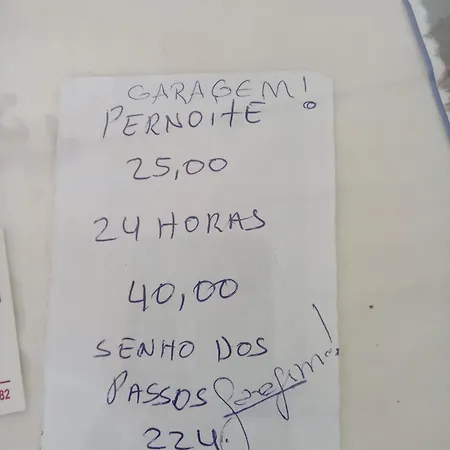 GARAGEM!
PERNOITE
25,00
24 HORAS
40,00
SENHO DOS
PASSOS
224.
82